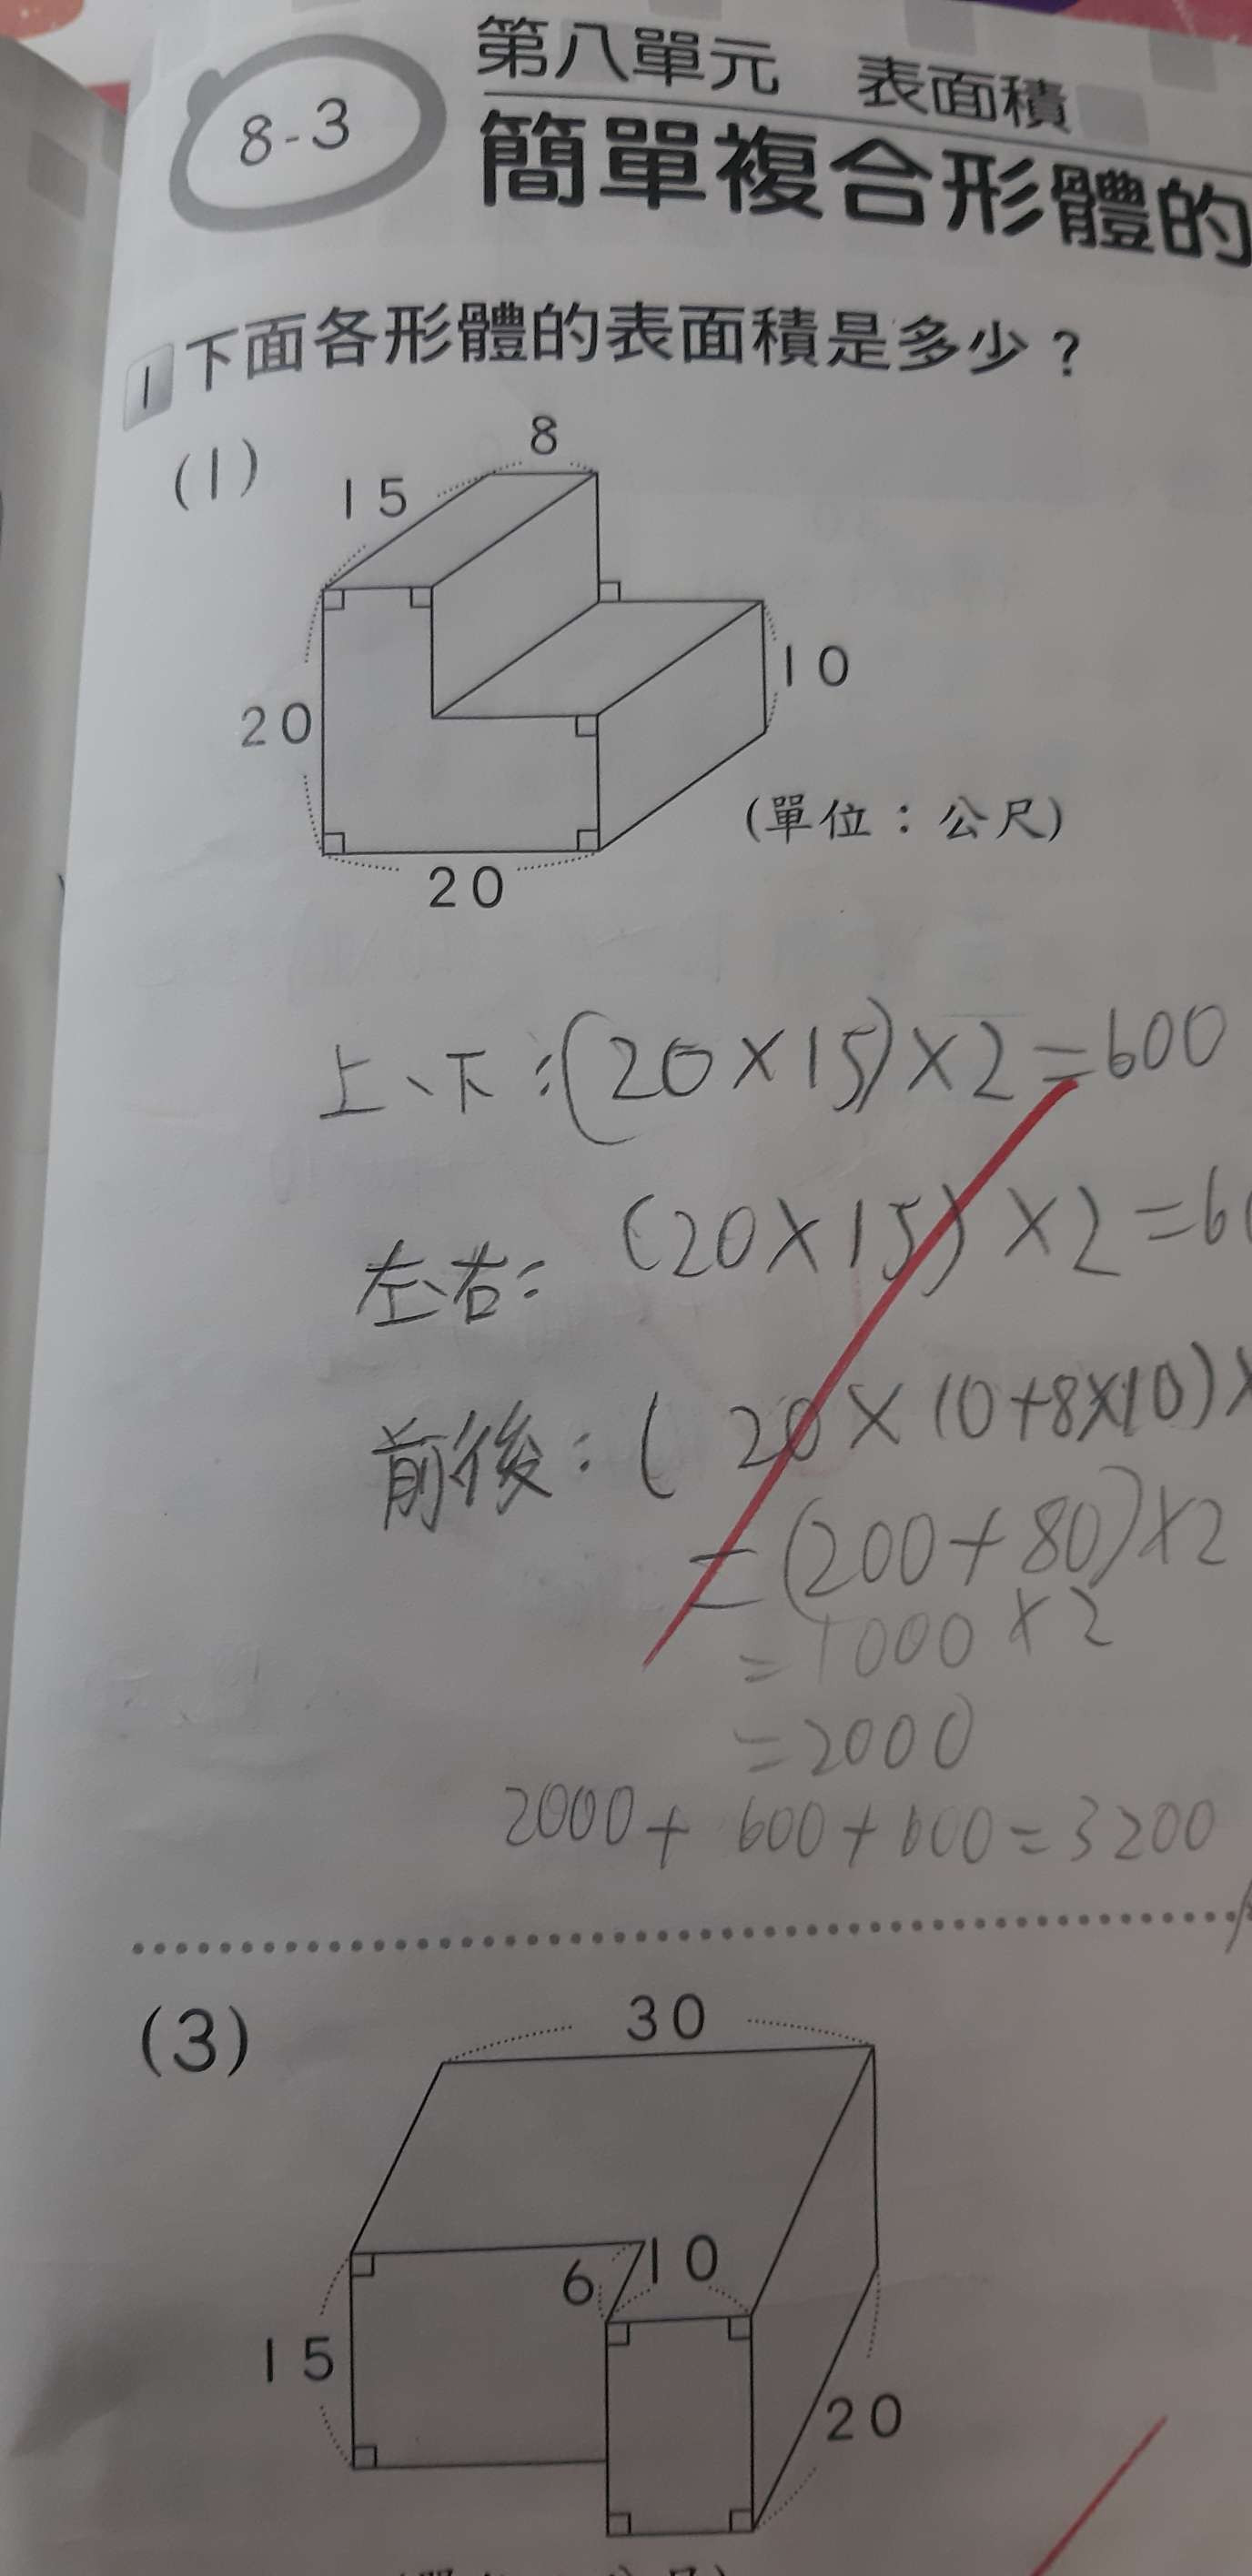 8-3
第八單元 表面積
簡單複合形體的
1 下面各形體的表面積是多少？
(1)
8
15
20
10
20
(單位：公尺)
上、下：(20×15)×2=600
左、右： (20×15)×2=6
前後：( 20×10+8×10)×
=(200+80)×2
=1000×2
=2000
2000+ 600+600=3200
(3)
30
6
10
15
20